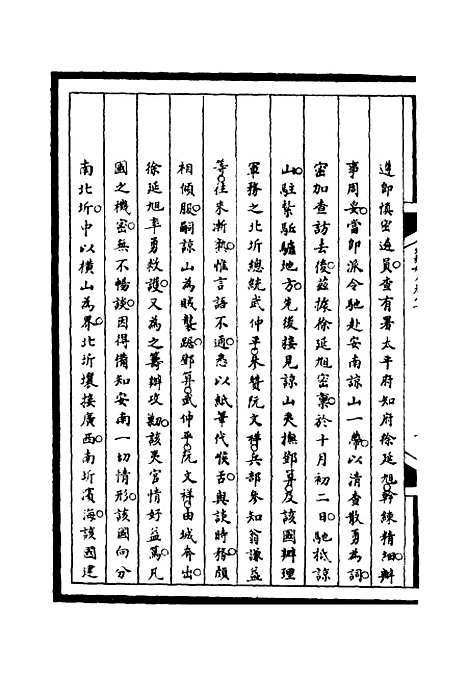 遵即慎密遴員查有署太平府知府徐延旭幹練精細辦
事周妥當即派令馳赴安南諒山一帶以清查散勇為詞
密加查訪去後茲據徐延旭密稟於十月初二日馳抵諒
山駐紮駈驢地方先後接見諒山夷撫鄧算及該國辦理
軍務之北圻總統武仲平參贊阮文祥兵部參知翁謙益
等往來漸熟惟言語不通悉以紙筆代喉舌與談時務頗
相傾服嗣諒山為賊襲踞鄧算武仲平阮文祥由城奔出
徐延旭率勇救護又為之籌辦攻剿該夷官情好益篤凡
國之機密無不暢談因得備知安南一切情形該國向分
南北圻中以橫山為界北圻壤接廣西南圻濱海該國建